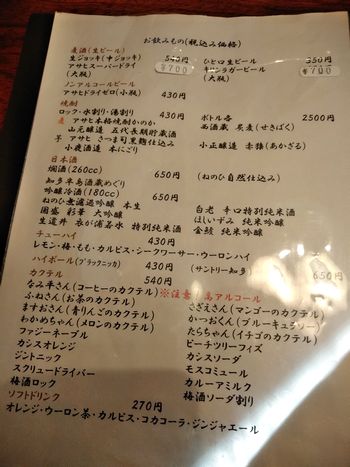 お飲みもの(税込み価格)
麦酒(生ビール)
生ジョッキ(中ジョッキ) 540円 ひと口生ビール 350円
アサヒスーパードライ ¥700 キリンラガービール ¥700
(大瓶) (大瓶)
ノンアルコールビール
アサヒドライゼロ(小瓶) 430円
焼酎
ロック・水割り・湯割り 430円 ボトル各 2500円
麦 アサヒ本格焼酎かのか 西酒蔵 炭麦(せきばく)
山元醸造 五代長期貯蔵酒
芋 アサヒ さつま司黒麹仕込み 小正醸造 赤猿(あかざる)
小鹿酒造 本にごり
日本酒
燗酒(260cc) 650円 (ねのひ自然仕込み)
知多半島酒蔵めぐり
吟醸冷酒(180cc) 650円
ねのひ無濾過吟醸 本生 白老 辛口特別純米酒
國盛 彩華 大吟醸 ほしいずみ 純米吟醸
生道井 衣が浦若水 特別純米酒 金鯱 純米吟醸
チューハイ 430円
レモン・梅・もも・カルピス・シークワーサー・ウーロンハイ
ハイボール(ブラックニッカ) 430円 (サントリー知多) 650円
カクテル 540円
なみ平さん(コーヒーのカクテル) ※注意 高アルコール
ふねさん(お茶のカクテル) さざえさん(マンゴーのカクテル)
ますおさん(青りんごのカクテル) かつおくん(ブルーキュラソー)
わかめちゃん(メロンのカクテル) たらちゃん(イチゴのカクテル)
ファジーネーブル ピーチツリーフィズ
カシスオレンジ カシスソーダ
ジントニック モスコミュール
スクリュードライバー カルーアミルク
梅酒ロック 梅酒ソーダ割り
ソフトドリンク 270円
オレンジ・ウーロン茶・カルピス・コカコーラ・ジンジャエール